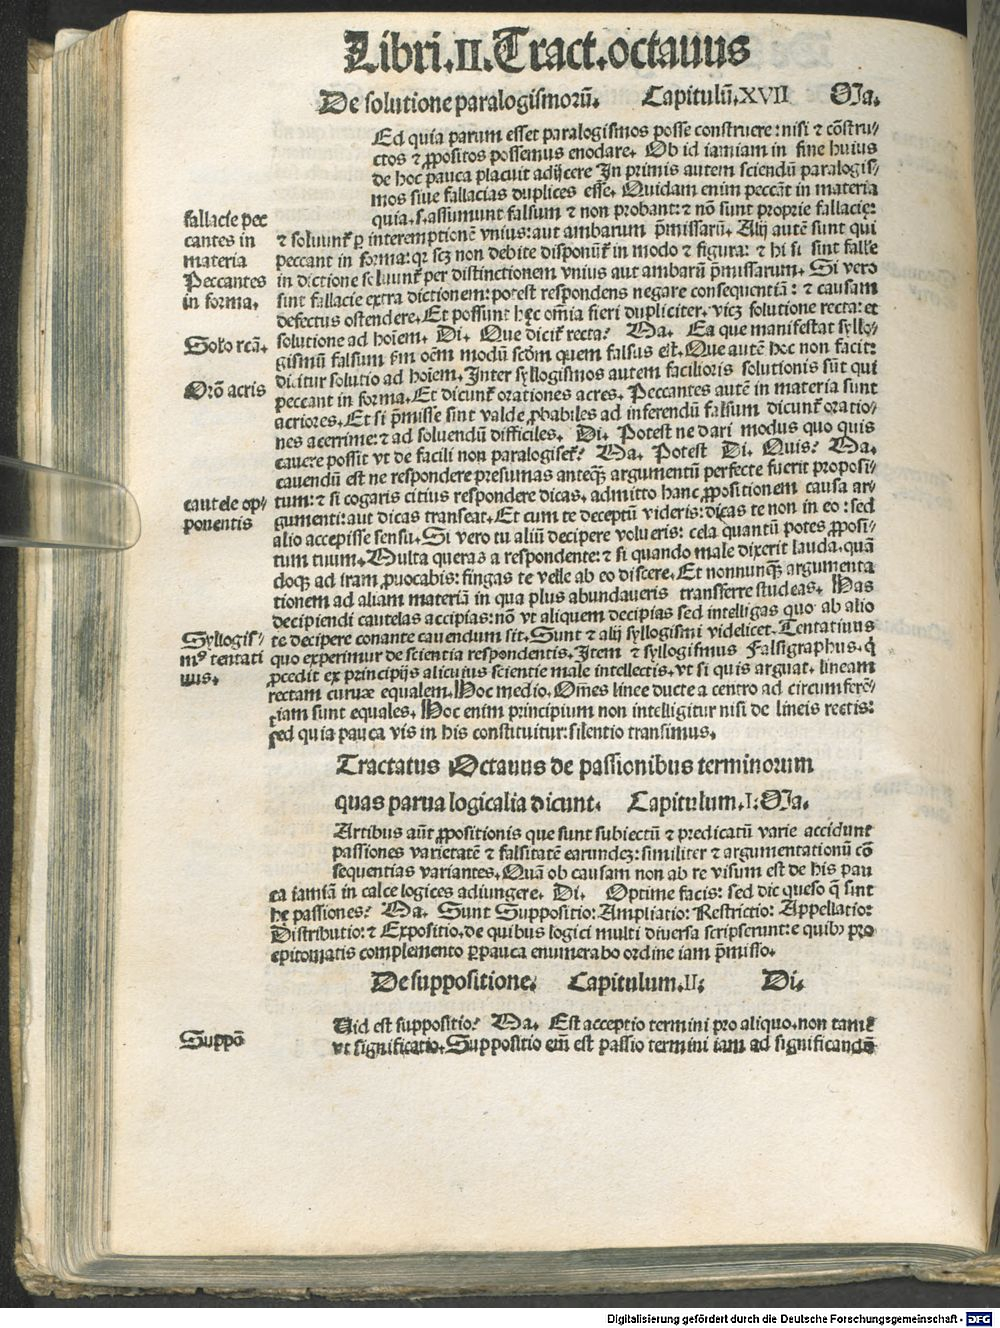 Libri.II.Tract.octauus
De solutione paralogismorū. Capitulū.XVII Ma.
Ed quia parum esset paralogismos posse construere: nisi ⁊ cōstru/
ctos ⁊ ꝓpositos possemus enodare. Ob id iamiam in fine huius
de hoc pauca placuit adijcere In primis autem sciendū paralogis/
mos siue fallacias duplices esse. Quidam enim peccāt in materia
quia.s.assumunt falsum ⁊ non probant: ⁊ nō sunt proprie fallacię:
⁊ soluunt̃ ꝑ interemptionē vnius: aut ambarum p̄missarū. Alij autē sunt qui
peccant in forma: qꝛ scꝫ non debite disponūt̃ in modo ⁊ figura: ⁊ hi si sint falle
in dictione soluunt̃ per distinctionem vnius aut ambarū p̄missarum. Si vero
sint fallacie extra dictionem: potest respondens negare consequentiā: ⁊ causam
defectus ostendere. Et possunt hęc om̄ia fieri dupliciter. vicꝫ solutione recta: et
solutione ad hoīem. Di. Que dicit̃ recta? Ma. Ea que manifestat syllo/
gismū falsum ẜm oēm modū scōm quem falsus est. Que autē hoc non facit:
dicitur solutio ad hoīem. Inter syllogismos autem facilioris solutionis sūt qui
peccant in forma. Et dicunt̃ orationes acres. Peccantes autē in materia sunt
acriores. Et si p̄misse sint valde ꝓbabiles ad inferendū falsum dicunt̃ oratio/
nes acerrime: ⁊ ad soluendū difficiles. Di. Potest ne dari modus quo quis
cauere possit vt de facili non paralogiset̃? Ma. Potest Di. Quis? Ma.
cauendū est ne respondere presumas anteqꝫ argumentū perfecte fuerit proposi/
tum: ⁊ si cogaris citius respondere dicas. admitto hanc ꝓpositionem causa ar/
gumenti: aut dicas transeat. Et cum te deceptū videris: dicas te non in eo: sed
alio accepisse sensu. Si vero tu aliū decipere volueris: cela quantū potes ꝓposi/
tum tuum. Multa queras a respondente: ⁊ si quando male dixerit lauda. quā
doqꝫ ad iram ꝓuocabis: fingas te velle ab eo discere. Et nonnunqꝫ argumenta
tionem ad aliam materiā in qua plus abundaueris transferre studeas. Has
decipiendi cautelas accipias: nō vt aliquem decipias sed intelligas quo ab alio
te decipere conante cauendum sit. Sunt ⁊ alij syllogismi videlicet. Tentatiuus
quo experimur de scientia respondentis. Item ⁊ syllogismus Falsigraphus. q̇
ꝓcedit ex principijs alicuius scientie male intellectis. vt si quis arguat. lineam
rectam curuæ equalem. Hoc medio. Om̄es linee ducte a centro ad circumferē/
tiam sunt equales. Hoc enim principium non intelligitur nisi de lineis rectis:
sed quia pauca vis in his constituitur: silentio transimus.
fallacie pec
cantes in
materia
Peccantes
in forma.
Soło rcā.
Orō acris
cautele op/
ponentis
Syllogis/
mꝰ tentati
uus.
Tractatus Octauus de passionibus terminorum
quas parua logicalia dicunt. Capitulum.I. Ma.
Artibus aūt ꝓpositionis que sunt subiectū ⁊ predicatū varie accidunt
passiones varietatē ⁊ falsitatē earundeꝫ: similiter ⁊ argumentationū cō
sequentias variantes. Quā ob causam non ab re visum est de his pau
ca iamiā in calce logices adiungere. Di. Optime facis: sed dic queso q̄ sint
hę passiones? Ma. Sunt Suppositio: Ampliatio: Restrictio: Appellatio:
Distributio: ⁊ Expositio. de quibus logici multi diuersa scripserunt: e quibꝰ pro
epitomatis complemento ꝑpauca enumerabo ordine iam p̄misso.
De suppositione. Capitulum.II. Di.
Uid est suppositio? Ma. Est acceptio termini pro aliquo. non tamē
vt significatio. Suppositio em̄ est passio termini iam ad significandū
Suppō
Digitalisierung gefördert durch die Deutsche Forschungsgemeinschaft - DFG